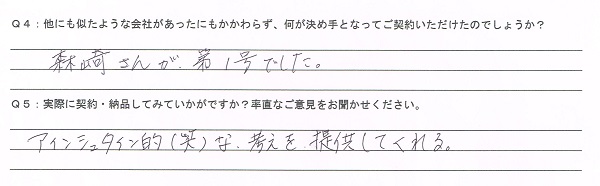 Q4：他にも似たような会社があったにもかかわらず、何が決め手となってご契約いただけたのでしょうか？
森崎さんが、第1号でした。
Q5：実際に契約・納品してみていかがですか？率直なご意見をお聞かせください。
アインシュタイン的(笑)な、考えを、提供してくれる。